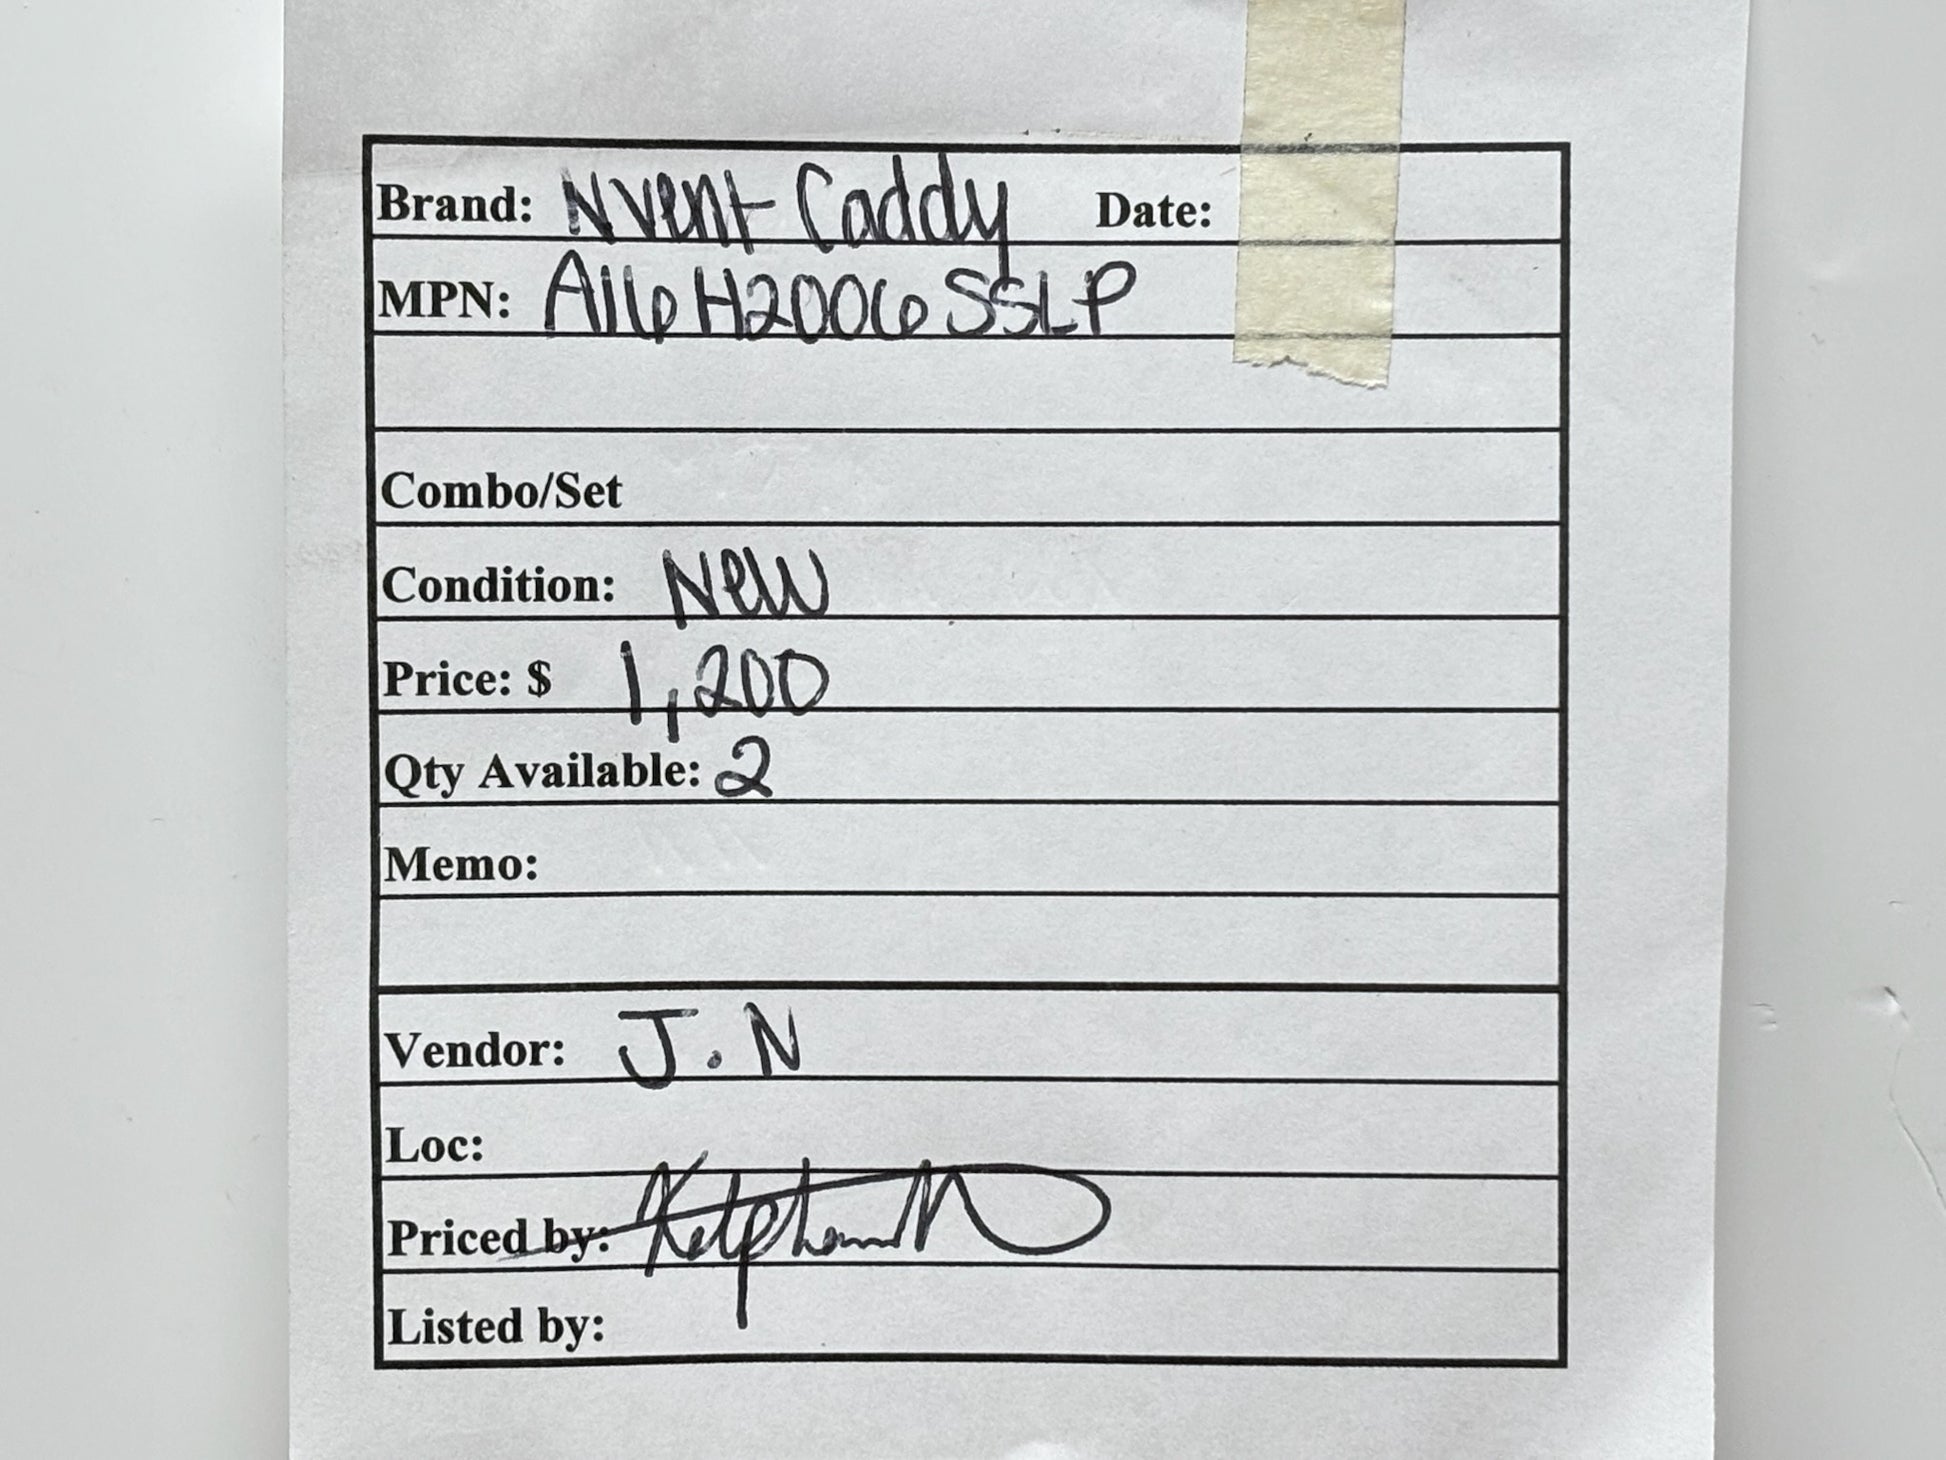 Brand: Nvent Caddy Date:
MPN: A116H2006SSLP
Combo/Set
Condition: New
Price: $ 1,200
Qty Available: 2
Memo:
Vendor: J.N
Loc:
Priced by:
Listed by: